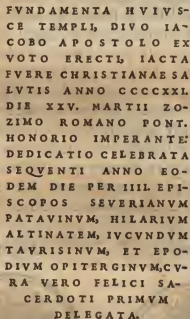 FVNDAMENTA HVIVS-
CE TEMPLI, DIVO IA-
COBO APOSTOLO EX
VOTO ERECTI, IACTA
FVERE CHRISTIANAE SA
LVTIS ANNO CCCCXXI.
DIE XXV. MARTII ZO-
ZIMO ROMANO PONT.
HONORIO IMPERANTE.
DEDICATIO CELEBRATA
SEQVENTI ANNO EO-
DEM DIE PER IIII. EPI-
SCOPOS SEVERIANVM
PATAVINVM, HILARIVM
ALTINATEM, IVCVNDVM
TAVRISINVM, ET EPO-
DIVM OPITERGINVM, CV-
RA VERO FELICI SA-
CERDOTI PRIMVM
DELEGATA.